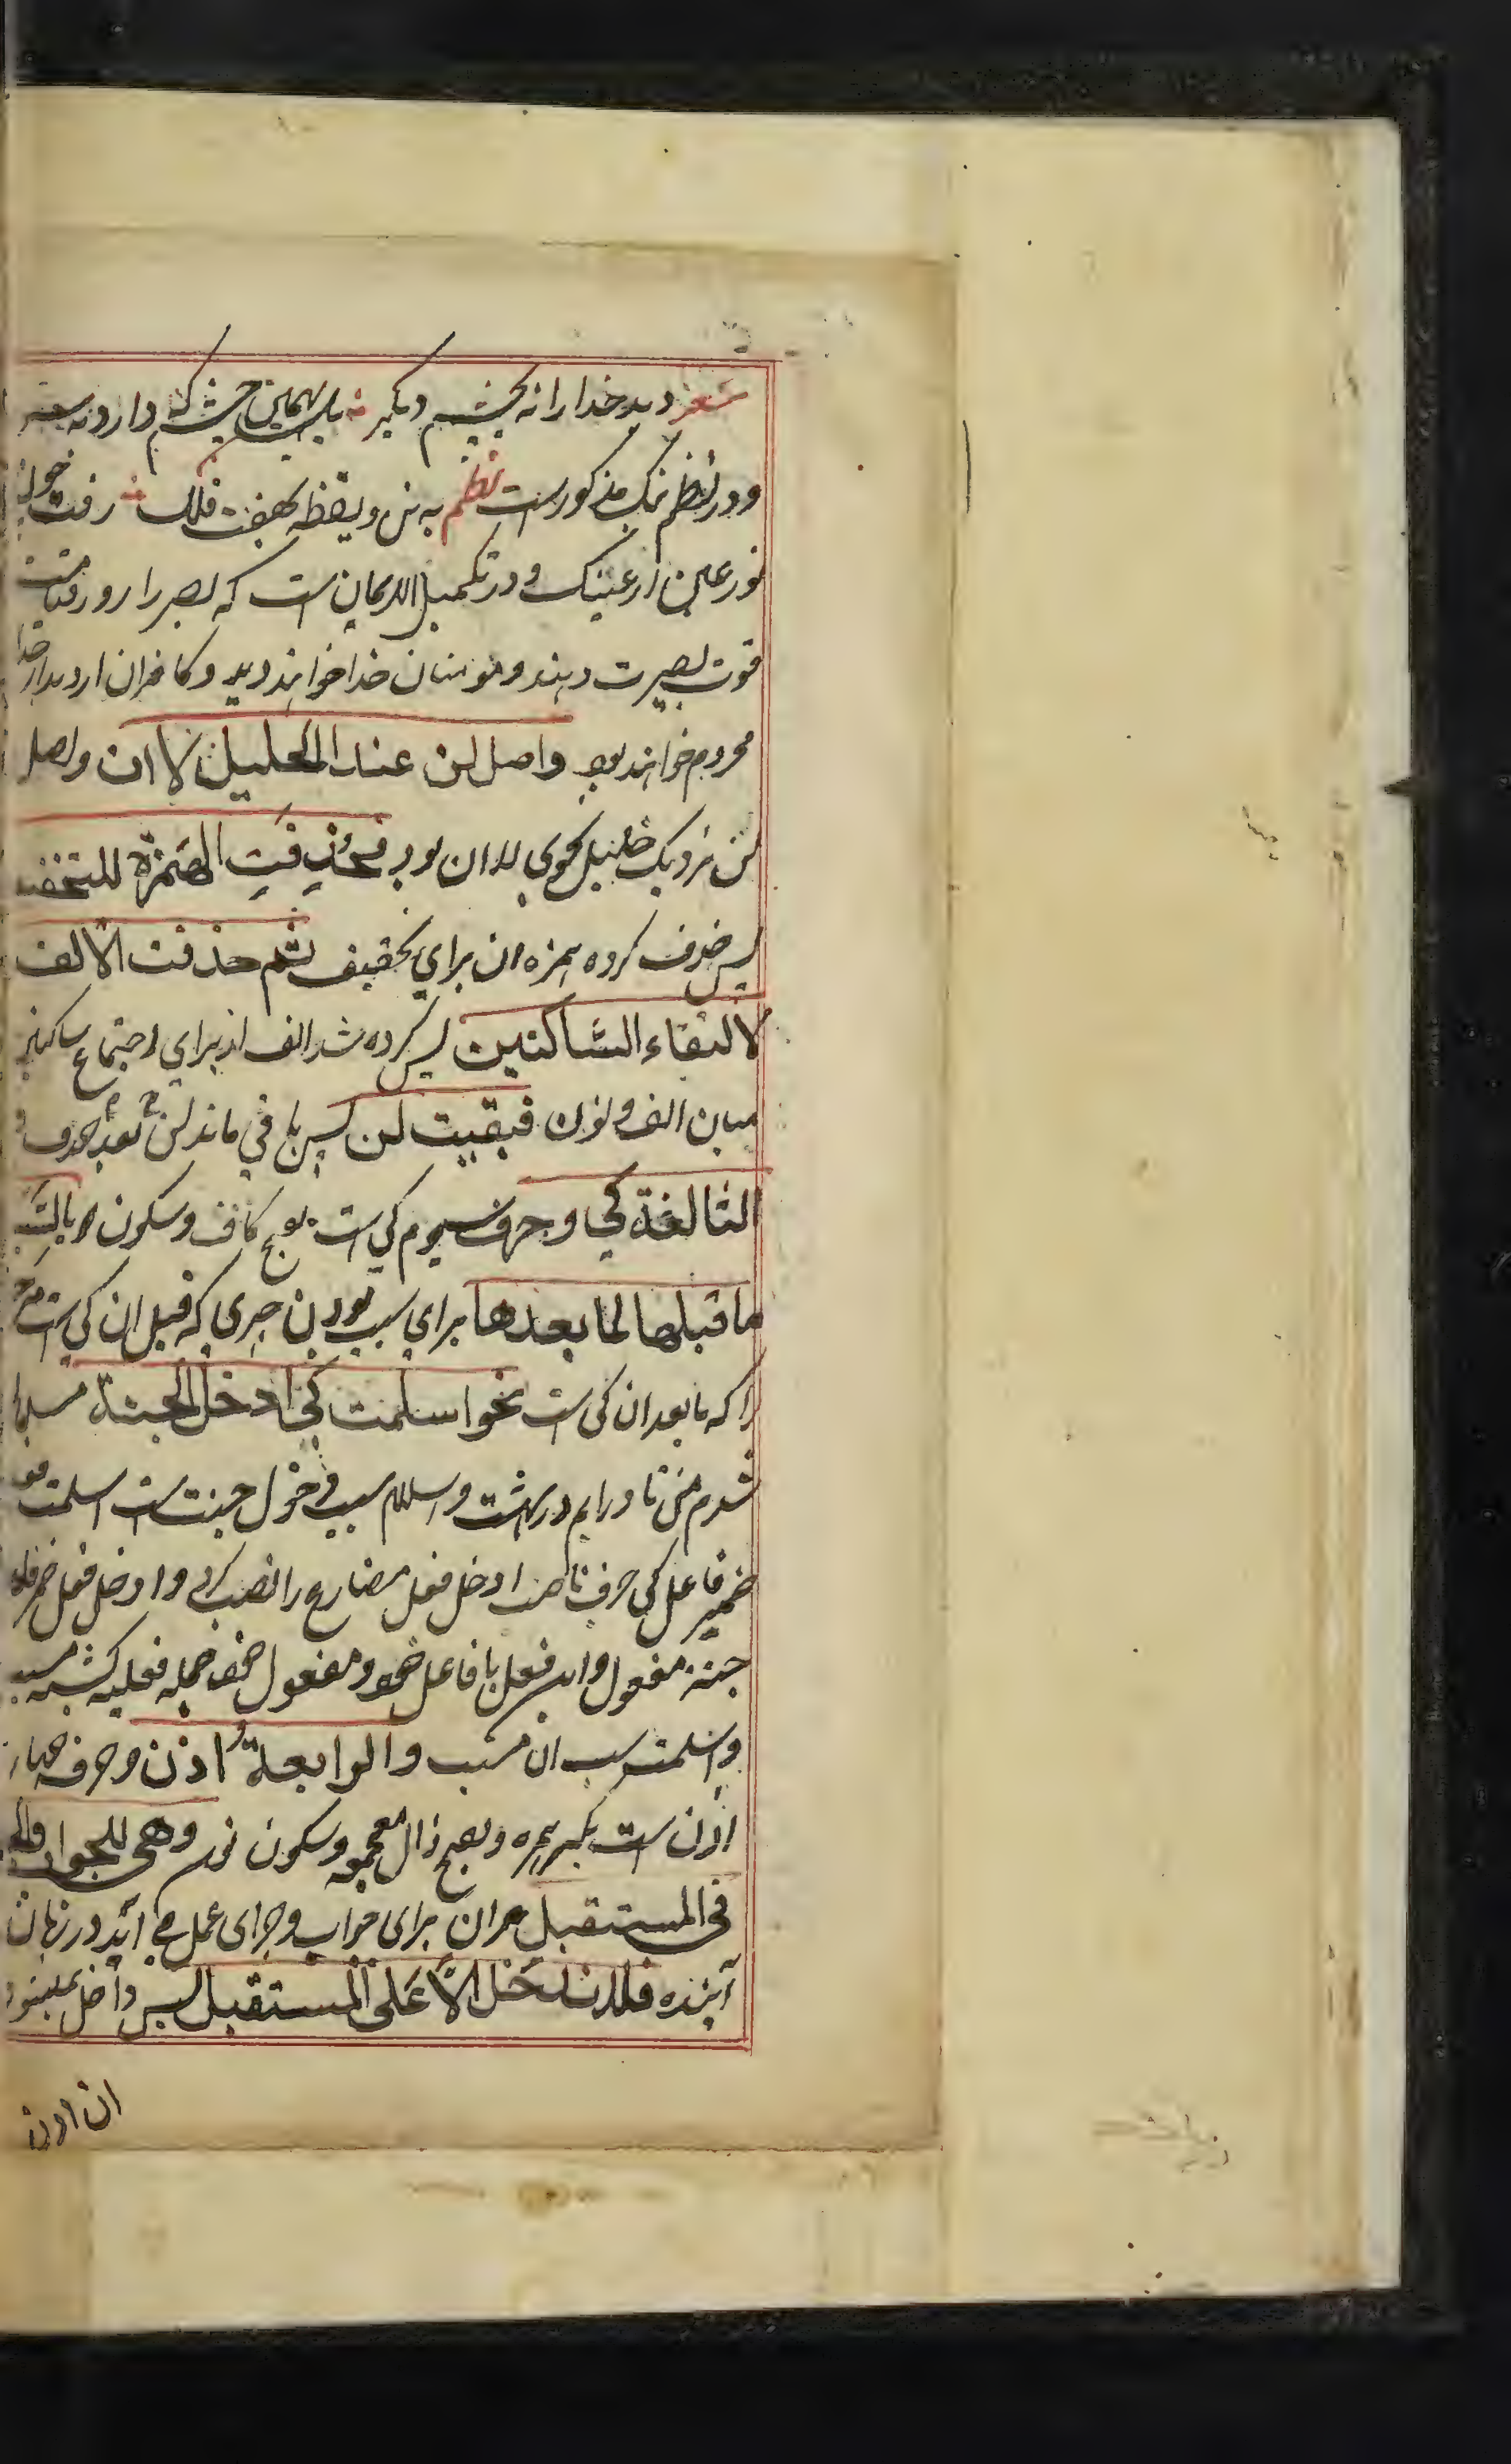 شعر دید خدا را نه بچشم دیگر بل بهمین چشم که دارد بسر
و در نظم نمک مذکور است نظم به تن و یقظه بهفت فلک رفت چون
نور عین از عینک و در تکمیل الایمان است که بصر را روز قیامت
قوت بصیرت دهند و مومنان خدا خواهند دید و کافران از دیدار خدا
محروم خواهند بود واصل لن عند الخلیل لا ان واصل
لن نزدیک خلیل نحوی لا ان بود فحذفت الهمزة للتخفیف
پس حذف کرده همزه ان برای تخفیف ثم حذفت الالف
لالتقاء الساکنین پس کرده شد الف از برای اجتماع ساکنین
میان الف و نون فبقیت لن پس باقی ماند لن بعد حذف
الثالثة کی و حرف سیوم کی است بفتح کاف و سکون یا لسبب
ما قبلها لما بعدها برای سبب بودن چیزی که قبل ان کی است
را که مابعد ان کی است نحو اسلمت کی ادخل الجنة مسلمان
شدم من تا درایم در بهشت و اسلام سبب دخول جنت است اسلمت فعل
ضمیر فاعل کی حرف ناصب ادخل فعل مضارع را نصب کرد و ادخل فعل
جنة مفعول و این فعل با فاعل خود و مفعول خود جمله فعلیه گشته مسبب
و اسلمت سبب ان مسبب والرابعة اذن و حرف چهارم
اذن است بکسر همزه و بفتح ذال معجمه و سکون نون وهی للجواب والجزاء
فی المستقبل و ان برای جواب و جزای عمل می اید در زمان
آینده فلا تدخل الا علی المستقبل پس داخل نمیشود
ان اذن